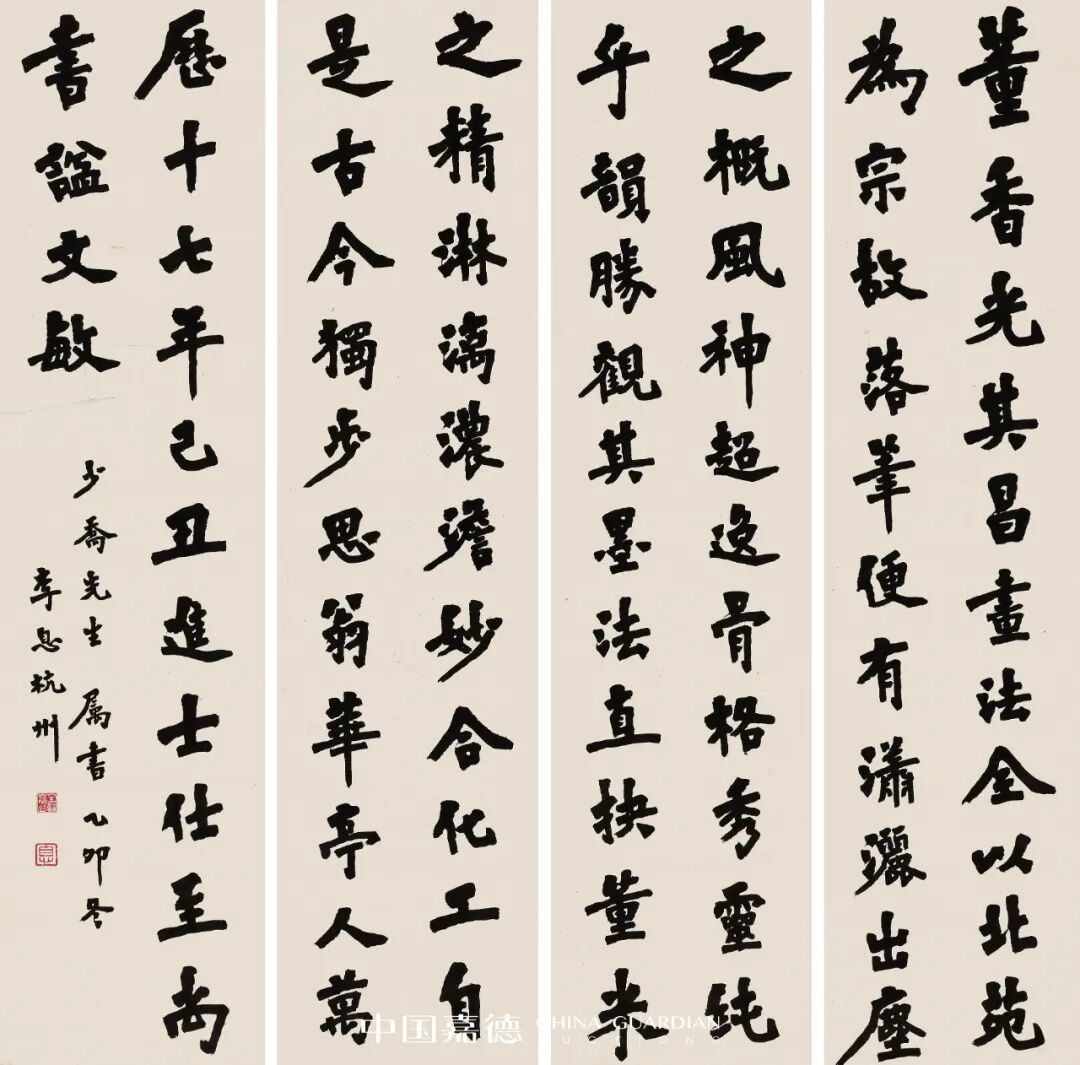 董香光其昌畫法全以北苑
為宗故落筆便有瀟灑出塵
之概風神超逸骨格秀靈純
乎韻勝觀其墨法直抉董米
之精淋漓濃澹妙合化工自
是古今獨步思翁華亭人萬
歷十七年己丑進士仕至尚
書諡文敏
少喬先生 属書 乙卯冬
李息杭州
中国嘉德 CHINA GUARDIAN AUCTIONS